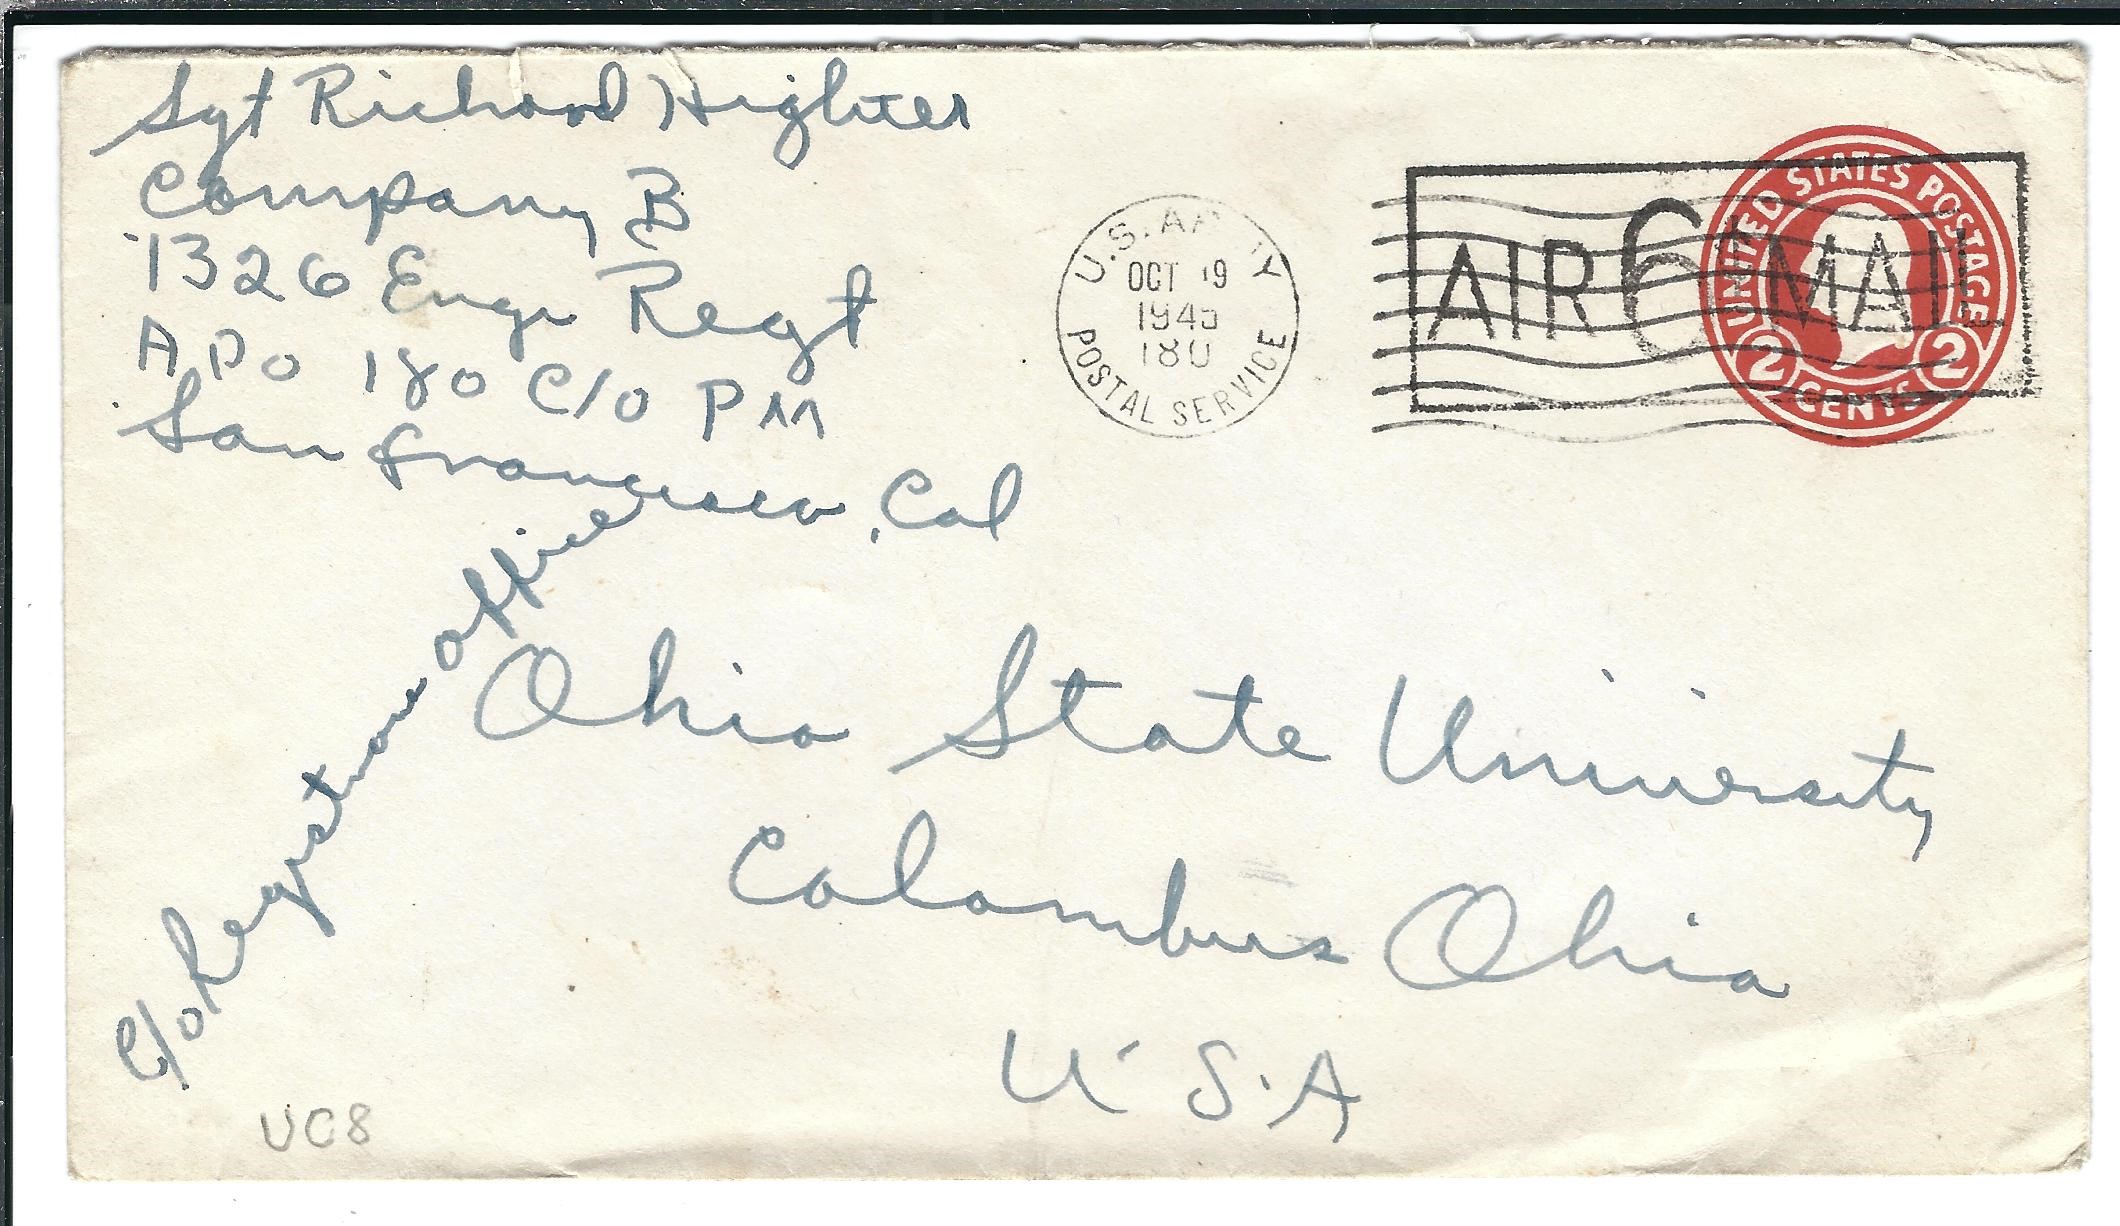 Sgt Richard Highter
Company B
1326 Engr Regt
APO 180 c/o PM
San Francisco, Cal
U.S. ARMY
OCT 19
1945
180
POSTAL SERVICE
AIR 6¢ MAIL
UNITED STATES POSTAGE
2 CENTS 2
c/o Registrars Office
Ohio State University
Columbus Ohio
U.S.A
UC8